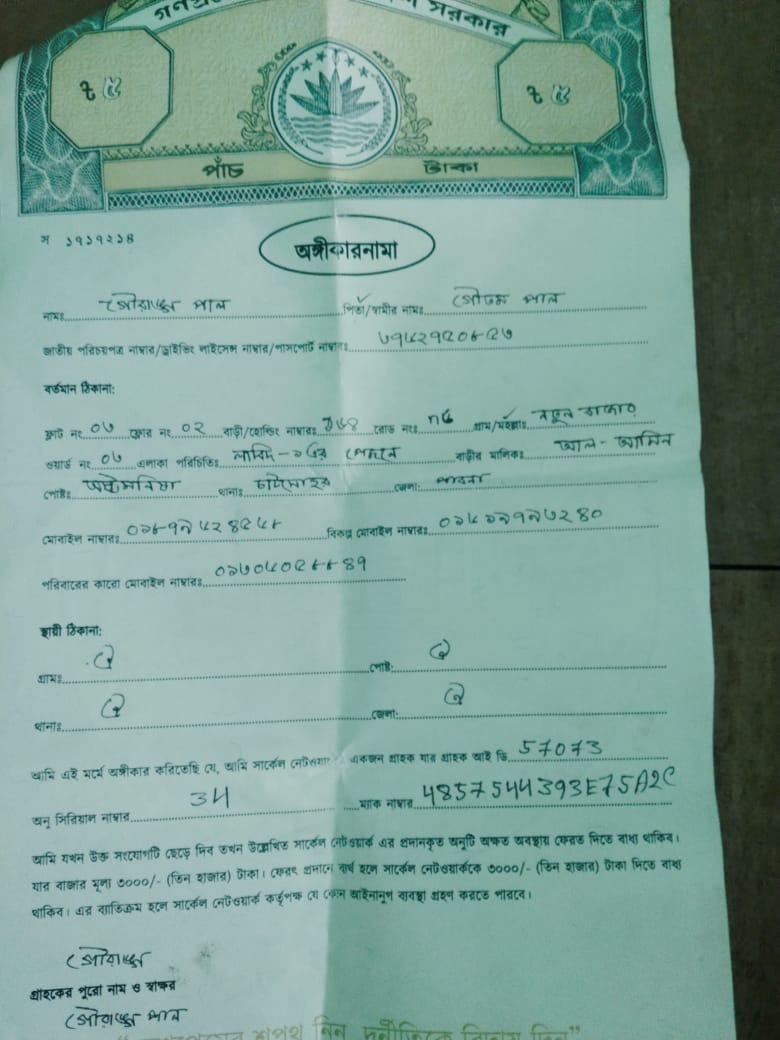 সরকার
৳ ৫ ৳ ৫
পাঁচ টাকা
স ১৭১৭২১৪
অঙ্গীকারনামা
নামঃ গৌরাঙ্গ পাল পিতা/স্বামীর নামঃ গৌতম পাল
জাতীয় পরিচয়পত্র নাম্বার/ড্রাইভিং লাইসেন্স নাম্বার/পাসপোর্ট নাম্বারঃ
বর্তমান ঠিকানা:
ফ্লাট নং ০৬ ফ্লোর নং ০২ বাড়ী/হোল্ডিং নাম্বারঃ রোড নংঃ গ্রাম/মহল্লাঃ নতুন বাজার
ওয়ার্ড নং ০৬ এলাকা পরিচিতিঃ পেছনে বাড়ীর মালিকঃ আল-আমিন
পোষ্টঃ অষ্টমনিষা থানাঃ চাটমোহর জেলা: পাবনা
মোবাইল নাম্বারঃ বিকল্প মোবাইল নাম্বারঃ
পরিবারের কারো মোবাইল নাম্বারঃ
স্থায়ী ঠিকানা:
গ্রামঃ ঐ পোষ্ট: ঐ
থানাঃ ঐ জেলা: ঐ
আমি এই মর্মে অঙ্গীকার করিতেছি যে, আমি সার্কেল একজন গ্রাহক যার গ্রাহক আই ডি 57073
অনু সিরিয়াল নাম্বার 34 ম্যাক নাম্বার 4857544393E75A2C
আমি যখন উক্ত সংযোগটি ছেড়ে দিব তখন উল্লেখিত সার্কেল নেটওয়ার্ক এর প্রদানকৃত অনুটি অক্ষত অবস্থায় ফেরত দিতে বাধ্য থাকিব।
যার বাজার মূল্য ৩০০০/- (তিন হাজার) টাকা। ফেরৎ প্রদানে ব্যর্থ হলে সার্কেল নেটওয়ার্ককে ৩০০০/- (তিন হাজার) টাকা দিতে বাধ্য
থাকিব। এর ব্যতিক্রম হলে সার্কেল নেটওয়ার্ক কর্তৃপক্ষ যে কোন আইনানুগ ব্যবস্থা গ্রহণ করতে পারবে।
গৌরাঙ্গ
গ্রাহকের পুরো নাম ও স্বাক্ষর
গৌরাঙ্গ পাল
শপথ নিন, দুর্নীতিকে বিদায় দিন”